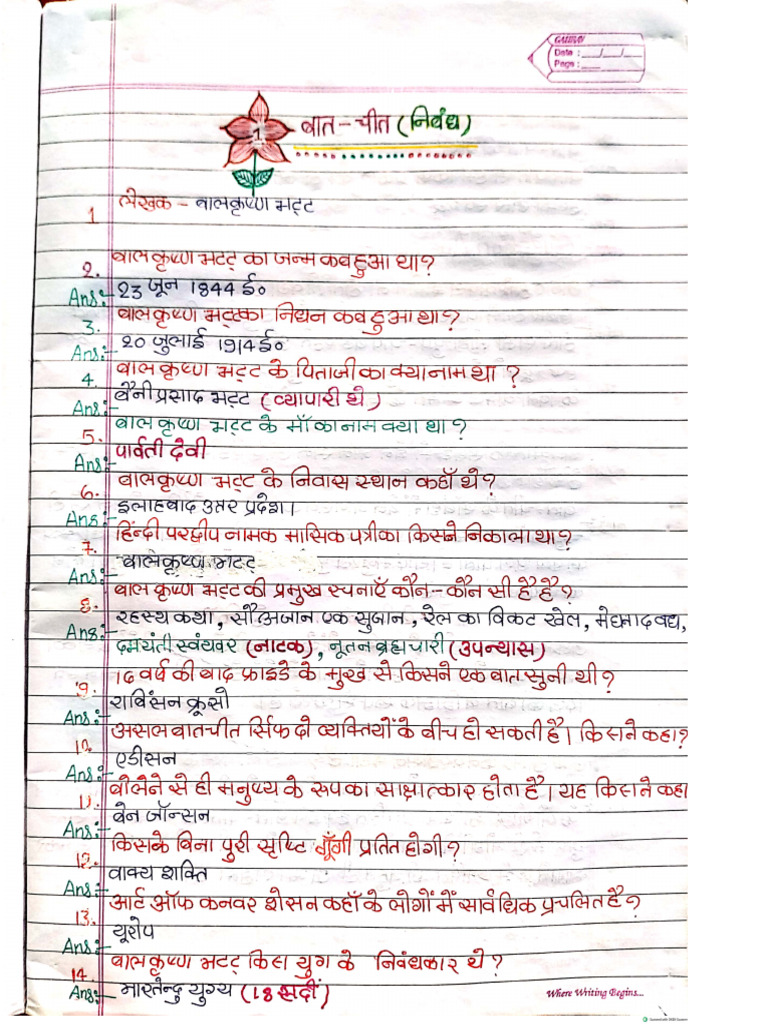 GAURAV
Date : __/__/__
Page : ___
1 बात - चीत (निबंध)
1 लेखक - बालकृष्ण भट्ट
2. बालकृष्ण भटट् का जन्म कब हुआ था?
Ans:- 23 जून 1844 ई०
3. बालकृष्ण भट्टका निधन कब हुआ था?
Ans:- 20 जुलाई 1914 ई०
4. बालकृष्ण भट्ट के पिताजी का क्या नाम था ?
Ans:- बेनी प्रसाद भट्ट (व्यापारी थे)
5. बालकृष्ण भट्ट के माँ का नाम क्या था?
Ans:- पार्वती देवी
6. बालकृष्ण भट्ट के निवास स्थान कहाँ थे?
Ans:- इलाहबाद उत्तर प्रदेश।
7. हिन्दी परद्वीप नामक मासिक पत्रीका किसने निकाला था?
Ans:- बालकृष्ण भटट्
8. बाल कृष्ण भट्ट की प्रमुख रचनाएँ कौन - कौन सी है है?
Ans:- रहस्य कथा, सौ अजान एक सुजान, रेल का विकट खेल, मेघनादवध,
दमयंती स्वंयवर (नाटक), नूतन ब्रह्मचारी (उपन्यास)
9. 16 वर्ष की बाद फ्राइडे के मुख से किसने एक बात सुनी थी?
Ans:- राविंसन क्रूसो
10. असल बातचीत सिर्फ दो व्यक्तियों के बीच हो सकती है। किसने कहा?
Ans:- एडीसन
11. बोलेने से ही मनुष्य के रूप का साक्षात्कार होता है। यह किसने कहा
Ans:- बेन जॉनसन
12. किसके बिना पुरी सृष्टि गूँगी प्रतित होगी?
Ans:- वाक्य शक्ति
13. आर्ट ऑफ कनवर शेसन कहाँ के लोगों में सार्वधिक प्रचलित है?
Ans:- यूरोप
14. बालकृष्ण भटट् किस युग के निबंधकार थे?
Ans:- भारतेन्दु युग्य (18 सदीं)
Where Writing Begins...